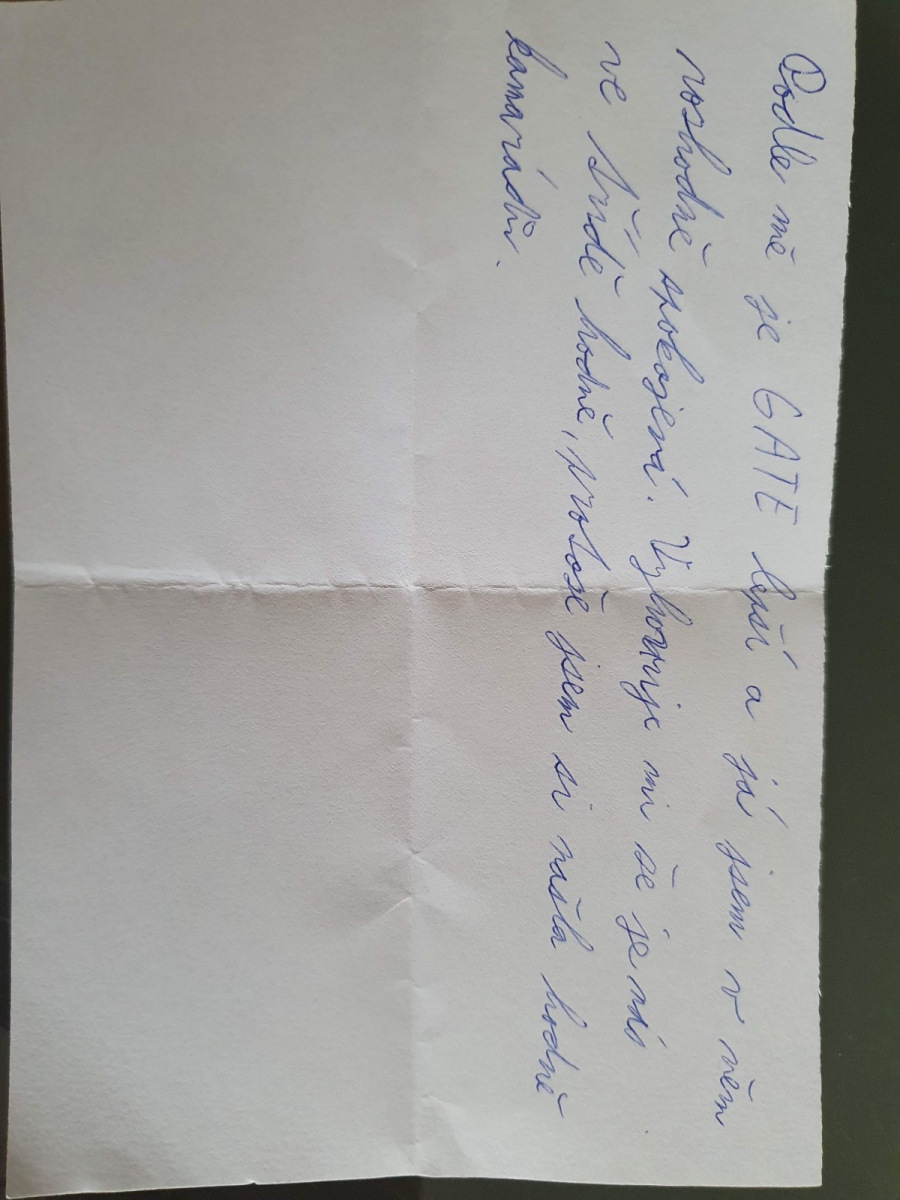 Podle mě je GATE lepší a já jsem v něm
rozhodně spokojená. Vyhovuje mi že je nás
ve třídě hodně, protože jsem si našla hodně
kamarádů.